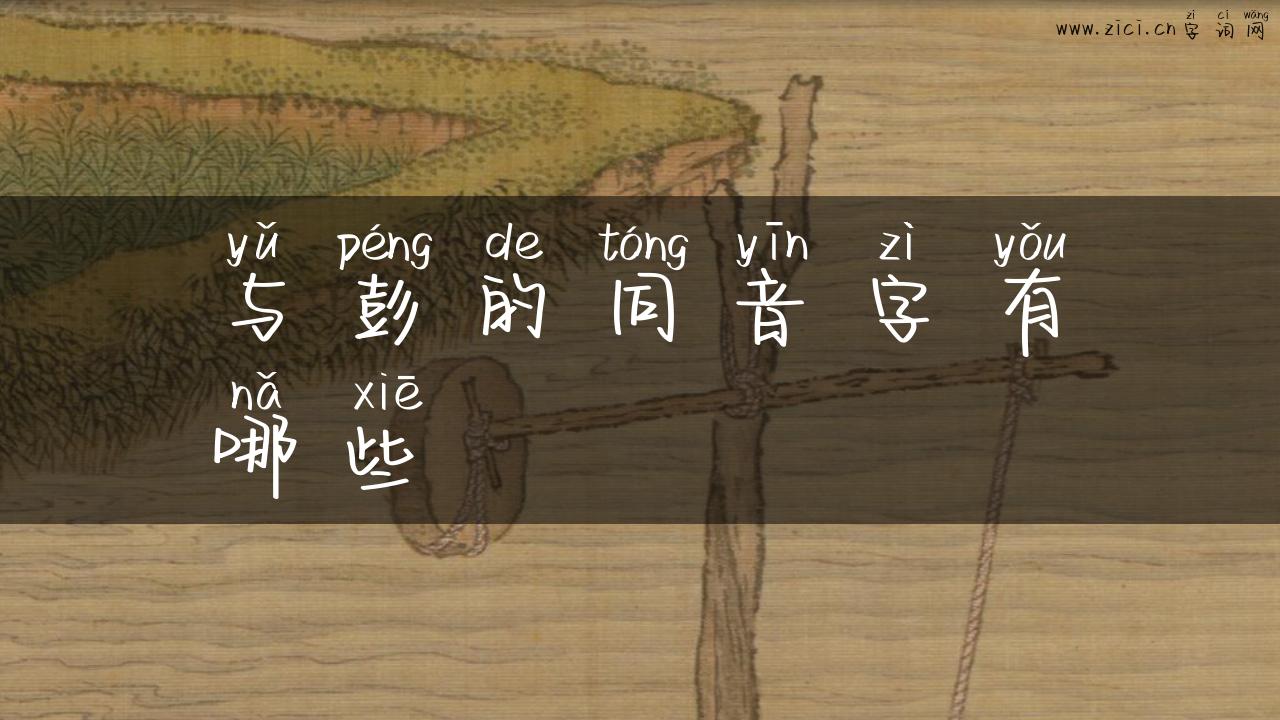 zì cí wǎng
www.zici.cn字词网
yǔ péng de tóng yīn zì yǒu
与彭的同音字有
nǎ xiē
哪些